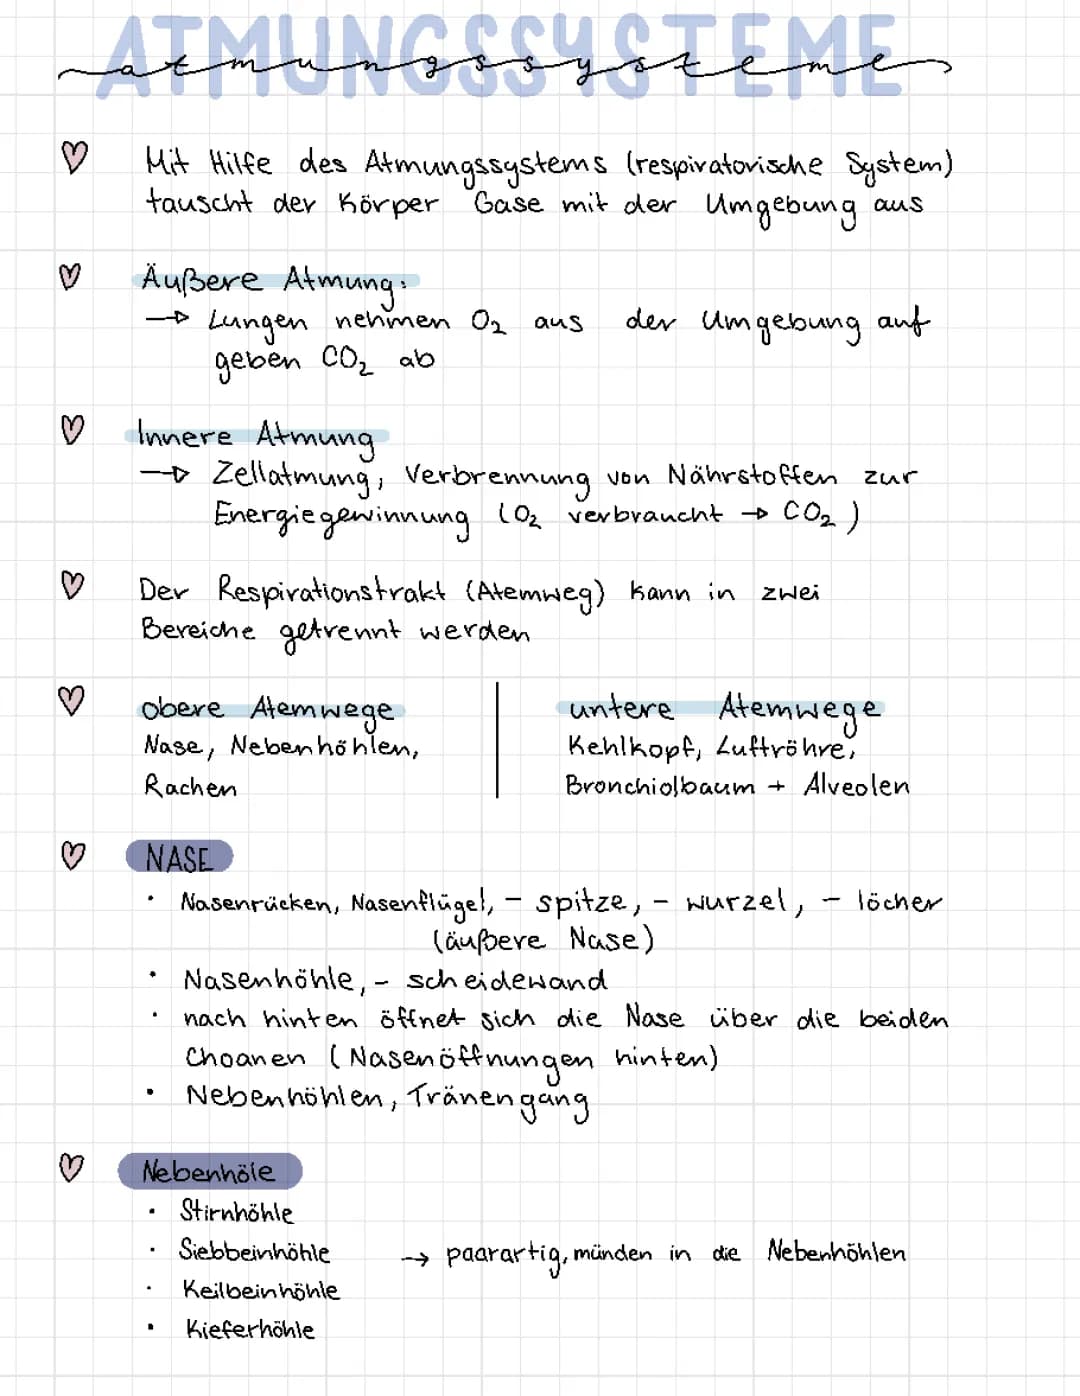 ATMUNGSSYSTEME
atmungssysteme
Mit Hilfe des Atmungssystems (respiratorische System)
tauscht der Körper Gase mit der Umgebung aus
Äußere Atmung:
→ Lungen nehmen O₂ aus der Umgebung auf
geben CO₂ ab
Innere Atmung
→ Zellatmung, Verbrennung von Nährstoffen zur
Energiegewinnung (O₂ verbraucht → CO₂)
Der Respirationstrakt (Atemweg) kann in zwei
Bereiche getrennt werden
obere Atemwege
Nase, Nebenhöhlen,
Rachen
untere Atemwege
Kehlkopf, Luftröhre,
Bronchiolbaum + Alveolen
NASE
• Nasenrücken, Nasenflügel, - spitze, - wurzel, - löcher
(äußere Nase)
• Nasenhöhle, - scheidewand
• nach hinten öffnet sich die Nase über die beiden
Choanen (Nasenöffnungen hinten)
• Nebenhöhlen, Tränengang
Nebenhöle
• Stirnhöhle
• Siebbeinhöhle → paarartig, münden in die Nebenhöhlen
• Keilbeinhöhle
• Kieferhöhle